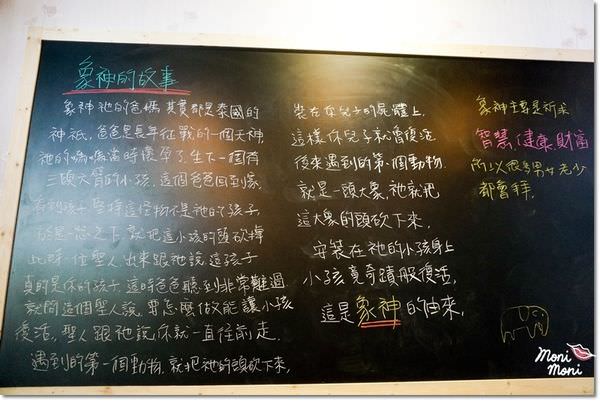 象神的故事
象神祂的爸媽其實都是泰國的
神祇,爸爸是長年征戰的一個天神,
祂的媽媽當時懷孕了生下一個有
三頭六臂的小孩.這個爸爸回到家.
看到孩子 堅持這怪物不是祂的孩子
於是一怒之下 就把這小孩的頭砍掉
此時一位聖人出來跟祂說這孩子
真的是你的孩子 這時爸爸聽到非常難過
就問這個聖人說.要怎麼做能讓小孩
復活,聖人跟祂說你就一直往前走.
遇到的第一個動物.就把祂的頭砍下來,
裝在你兒子的屍體上,
這樣你兒子就會復活
後來遇到的第一個動物.
就是一頭大象,祂就把
這大象的頭砍下來,
安裝在祂的小孩身上
小孩竟奇蹟般復活,
這是象神的由來,
象神主要是祈求
智慧,健康,財富
所以很多男女老少
都會拜,
Moni
Moni